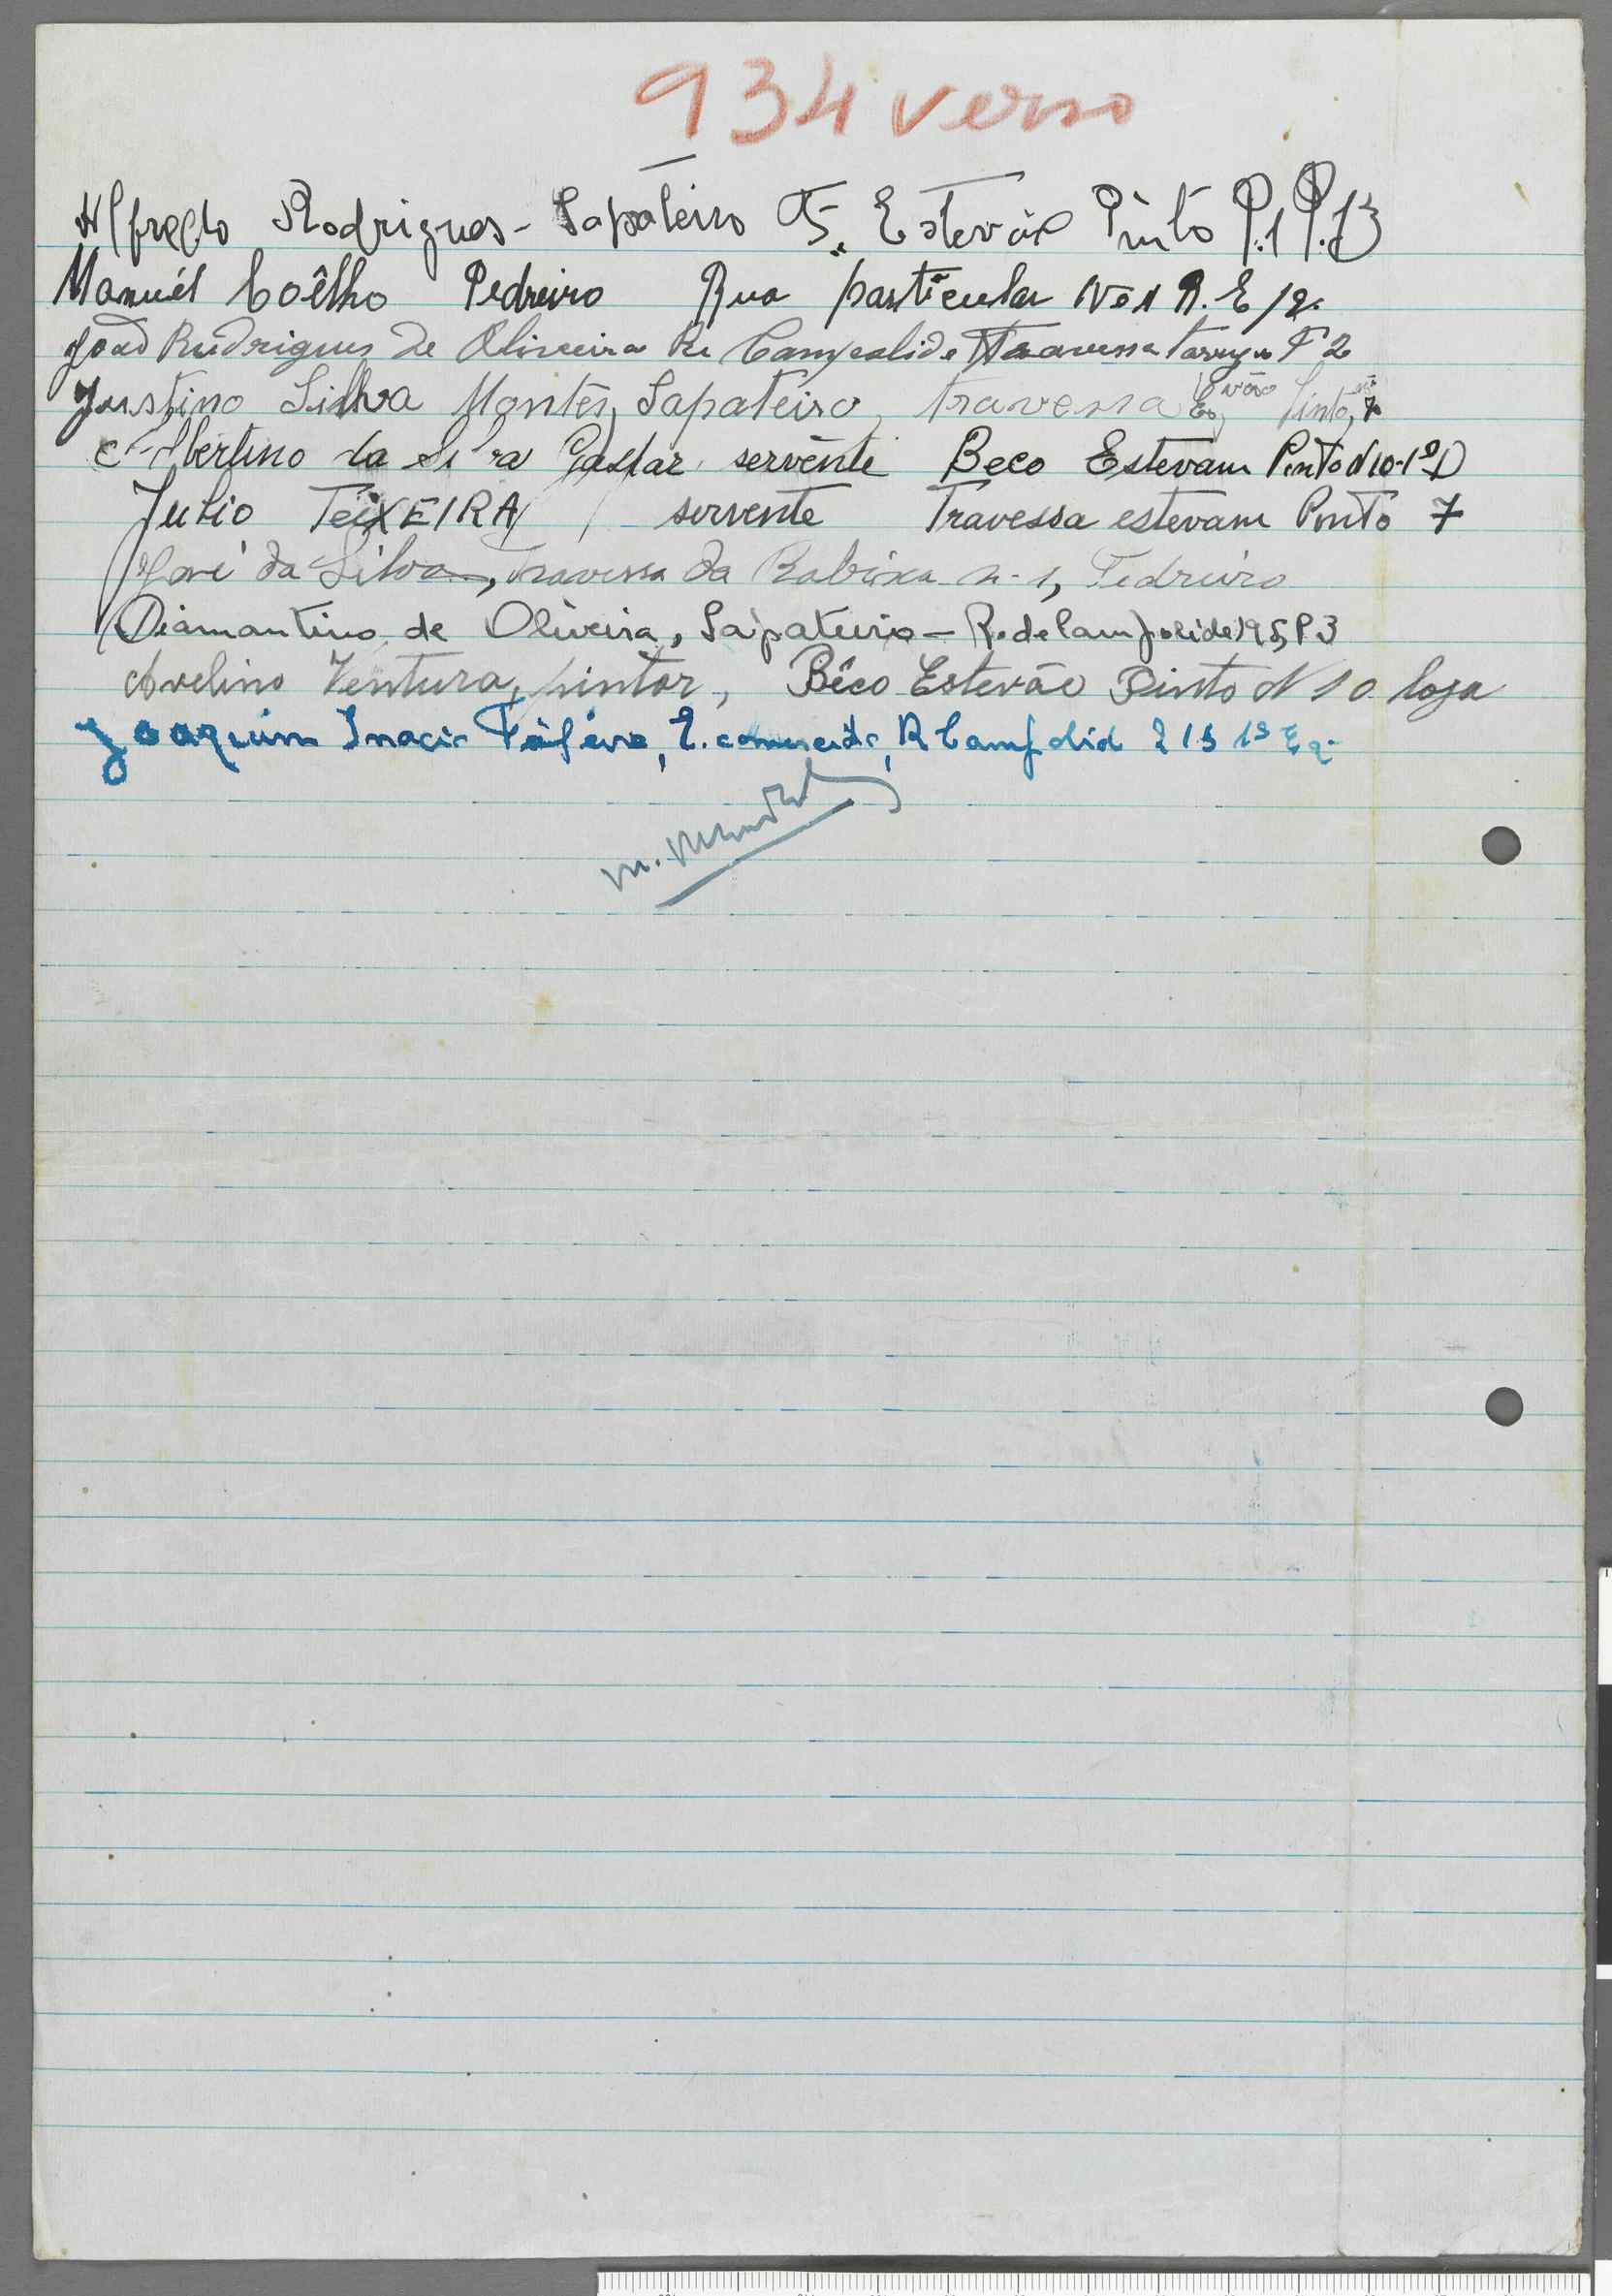 934 verso
Alfredo Rodrigues - Sapateiro T. Estevão Pinto P.1 P.13
Manuél Coêlho Pedreiro Rua particular Nº 1 R. E/q.
João Rudrigues de Oliveira Ru Campolide Travessa F 2
Justino Silva Montês, Sapateiro, travessa Esvão Pinto, 7
Albertino da Silva Gaspar servente Beco Estevam Pinto N 10-1º D
Julio TeiXEIRA servente Travessa estevam Pinto 7
José da Silva, Travessa da Rabixa n-1, Pedreiro
Diamantino de Oliveira, Sapateiro - R. de Campolide 195, P 3
Avelino Ventura, pintor, Bêco Estevão Pinto N 10 loja
Joaquim Inacio E. comercio, R Campolid 215 1º Eq.